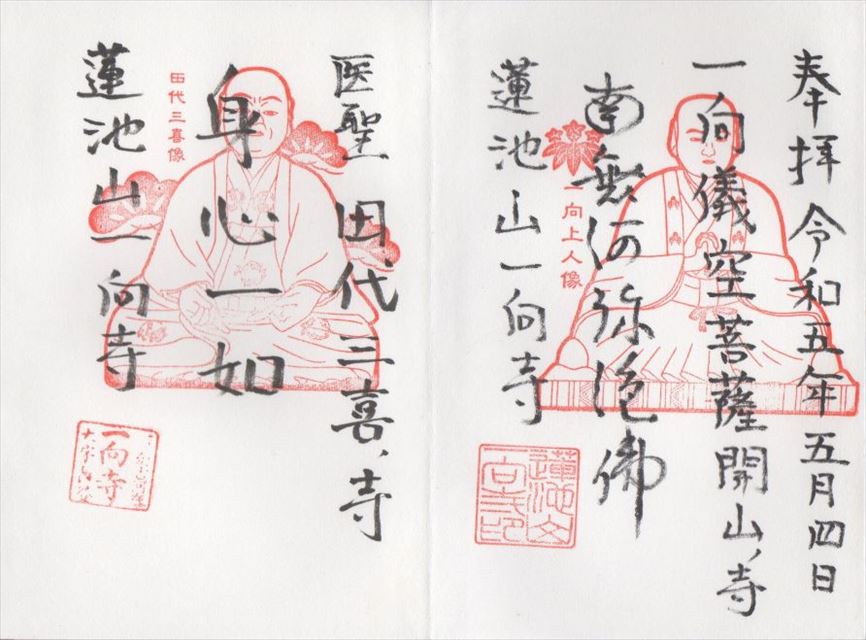 奉拝 令和五年五月四日
一向儀空菩薩開山ノ寺
南無阿弥陀佛
一向上人像
蓮池山一向寺
医聖 田代三喜ノ寺
身心一如
田代三喜像
蓮池山一向寺
一向寺